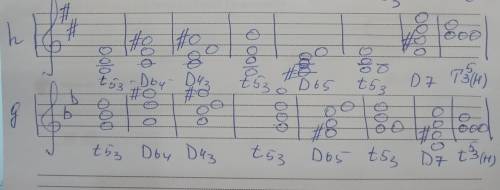 h
t5/3 - D6/4 - D4/3 t5/3 D6/5 t5/3 D7 T5/3(н)
g
t5/3 D6/4 D4/3 t5/3 D6/5 t5/3 D7 t5/3(н)